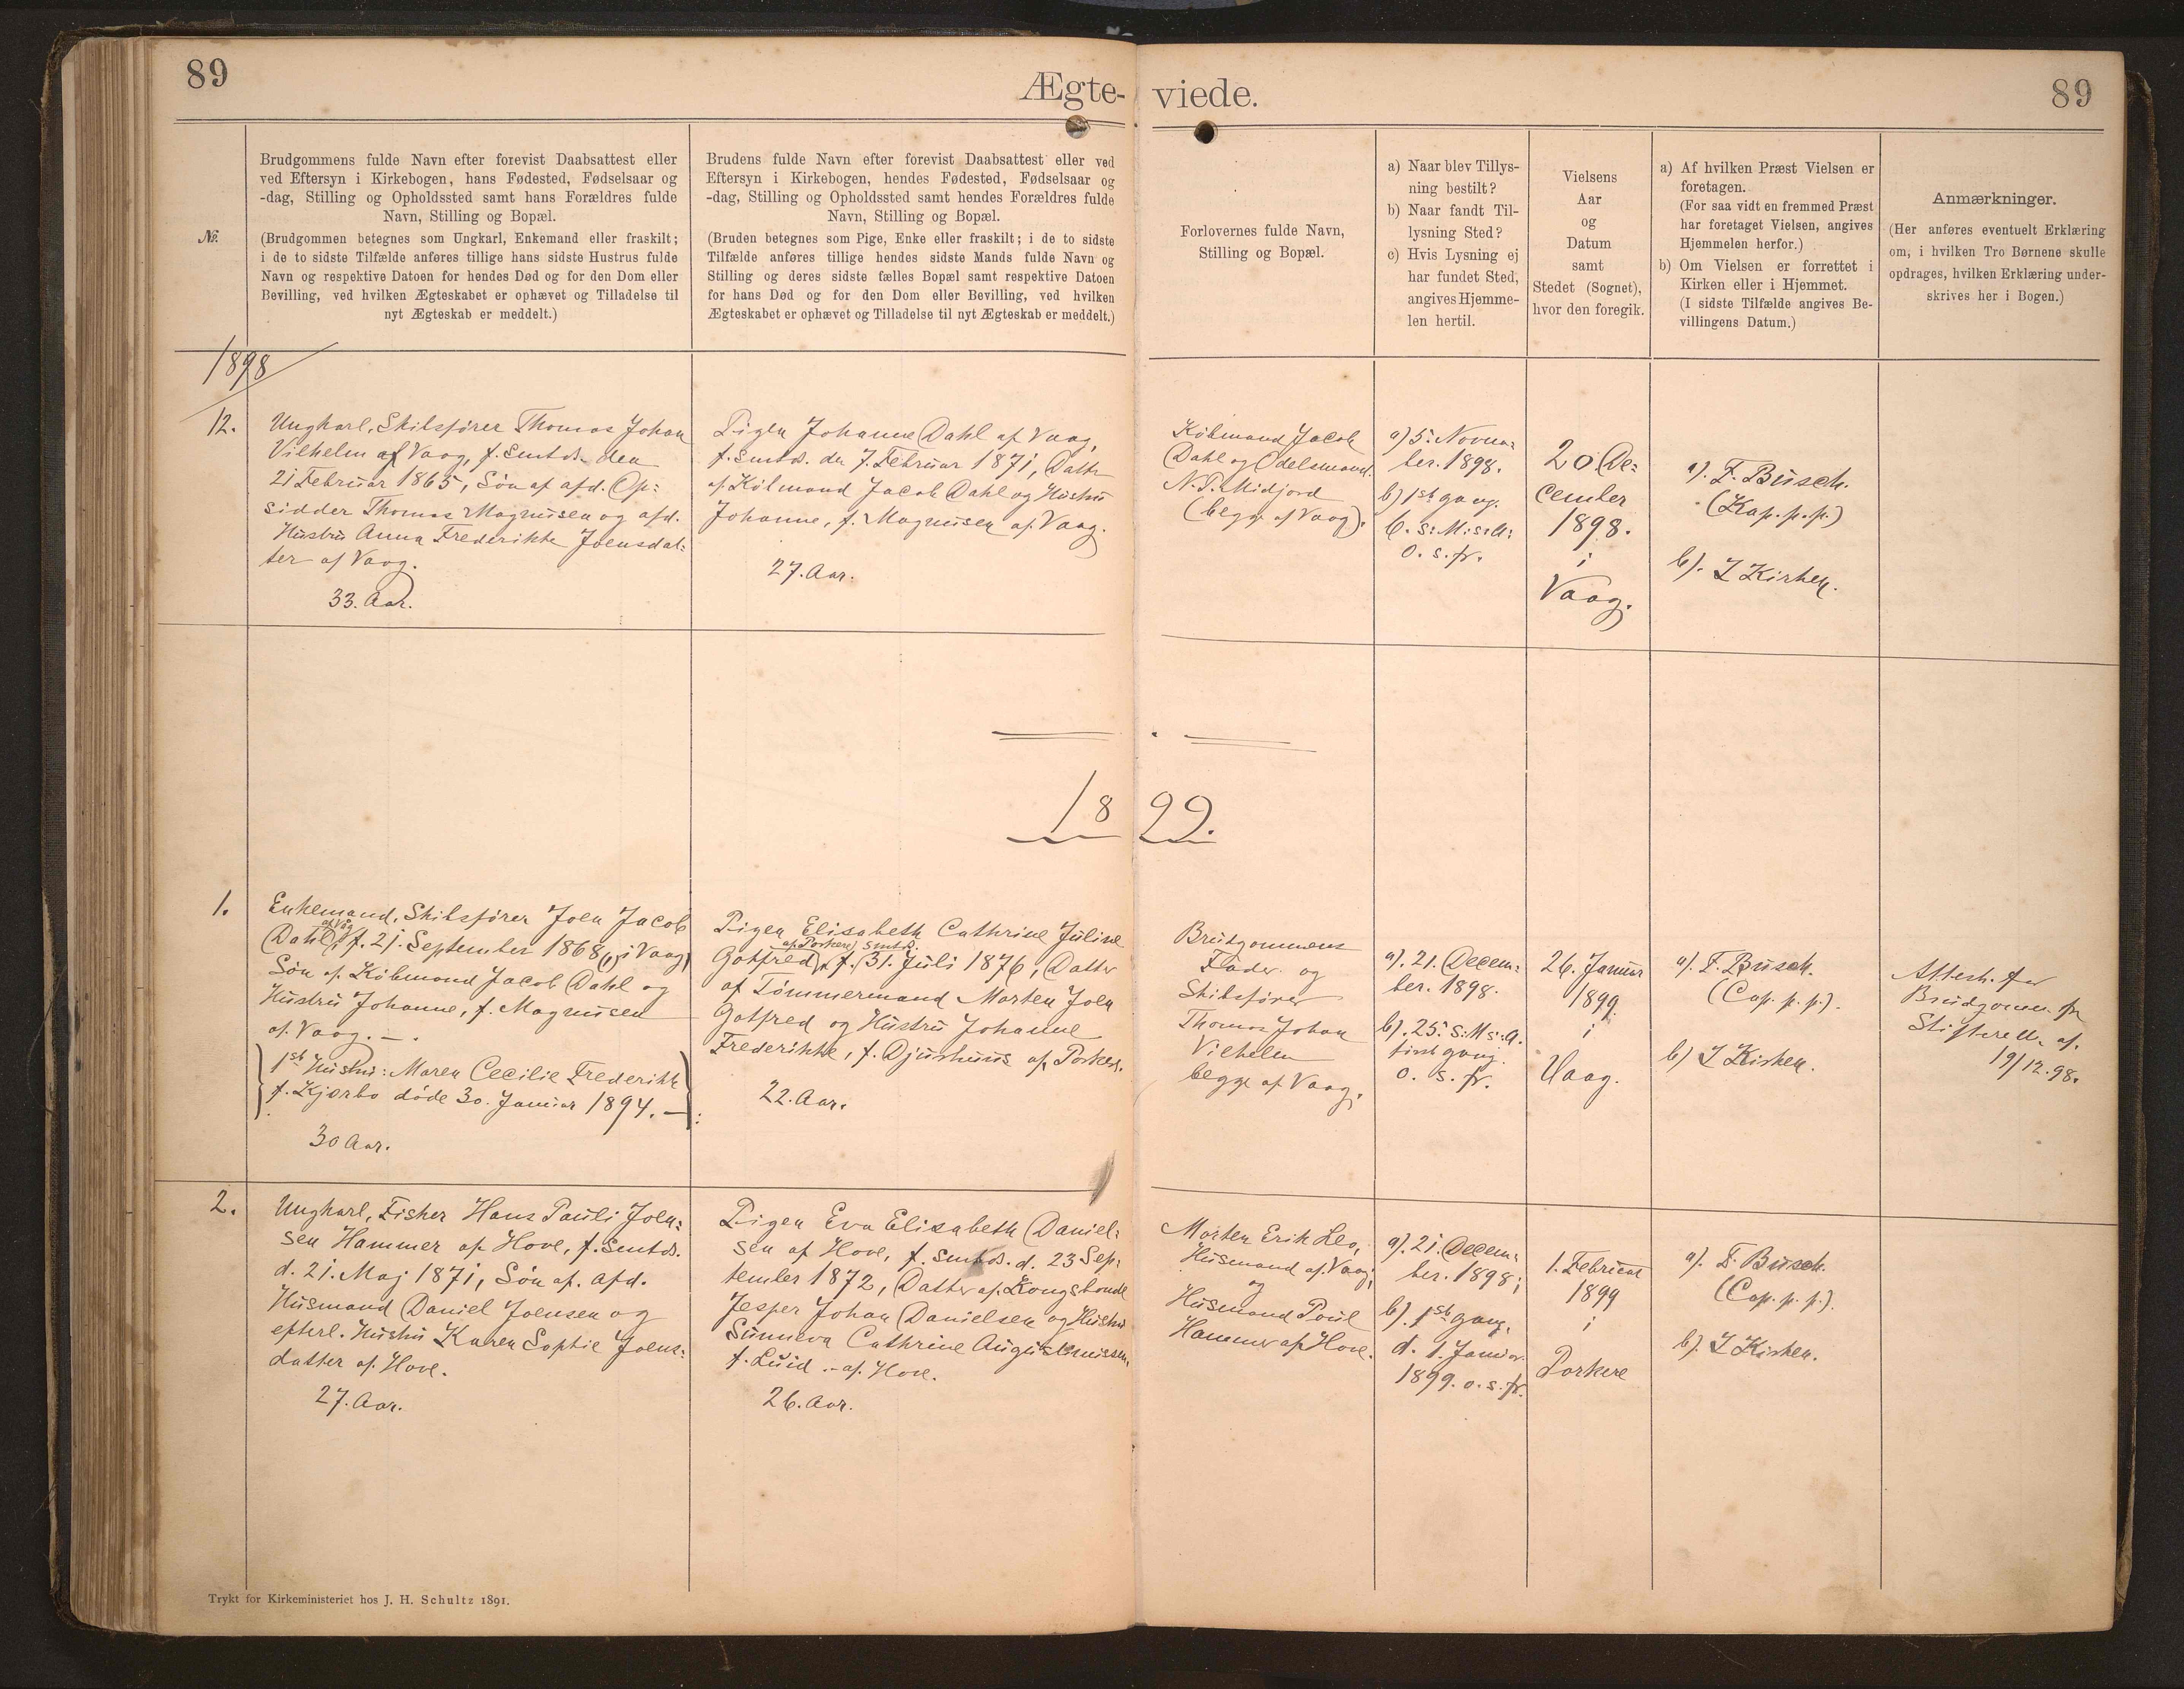 89
Ægte-
viede.
89
№.
Brudgommens fulde Navn efter forevist Daabsattest eller
ved Eftersyn i Kirkebogen, hans Fødested, Fødselsaar og
-dag, Stilling og Opholdssted samt hans Forældres fulde
Navn, Stilling og Bopæl.
(Brudgommen betegnes som Ungkarl, Enkemand eller fraskilt;
i de to sidste Tilfælde anføres tillige hans sidste Hustrus fulde
Navn og respektive Datoen for hendes Død og for den Dom eller
Bevilling, ved hvilken Ægteskabet er ophævet og Tilladelse til
nyt Ægteskab er meddelt.)
Brudens fulde Navn efter forevist Daabsattest eller ved
Eftersyn i Kirkebogen, hendes Fødested, Fødselsaar og
-dag, Stilling og Opholdssted samt hendes Forældres fulde
Navn, Stilling og Bopæl.
(Bruden betegnes som Pige, Enke eller fraskilt; i de to sidste
Tilfælde anføres tillige hendes sidste Mands fulde Navn og
Stilling og deres sidste fælles Bopæl samt respektive Datoen
for hans Død og for den Dom eller Bevilling, ved hvilken
Ægteskabet er ophævet og Tilladelse til nyt Ægteskab er meddelt.)
Forlovernes fulde Navn,
Stilling og Bopæl.
a) Naar blev Tillys-
ning bestilt?
b) Naar fandt Til-
lysning Sted?
c) Hvis Lysning ej
har fundet Sted,
angives Hjemme-
len hertil.
Vielsens
Aar
og
Datum
samt
Stedet (Sognet),
hvor den foregik.
a) Af hvilken Præst Vielsen er
foretagen.
(For saa vidt en fremmed Præst
har foretaget Vielsen, angives
Hjemmelen herfor.)
b) Om Vielsen er forrettet i
Kirken eller i Hjemmet.
(I sidste Tilfælde angives Be-
villingens Datum.)
Anmærkninger.
(Her anføres eventuelt Erklæring
om, i hvilken Tro Børnene skulle
opdrages, hvilken Erklæring under-
skrives her i Bogen.)
1898
12.
Ungkarl, Skibsfører Thomas Johan
Vilhelm af Vaag, f. smtds. den
21 Februar 1865, Søn af afd. Op=
sidder Thomas Magnusen og afd.
Hustru Anna Frederikke Joensdat=
ter af Vaag.
33. Aar.
Pigen Johanne Dahl af Vaag,
f. smtds. den 7. Februar 1871, Datter
af Købmand Jacob Dahl og Hustru
Johanne, f. Magnusen af Vaag.
27. Aar.
Købmand Jacob
Dahl og Odelsmand
N. P. Midjord
(begge af Vaag).
a) 5. Novem=
ber. 1898.
b) 1st gang.
6. S: M: s: A:
o. s. fr.
20 De=
cember
1898.
i
Vaag.
a). F. Busch.
(Kap. p. p.)
b). I Kirken.
1899.
1.
Enkemand, Skibsfører Joen Jacob
af Våg
Dahl, f. 21. September 1868 i Vaag,
Søn af Købmand Jacob Dahl og
Hustru Johanne, f. Magnusen
af Vaag. -.
1st Hustru: Maren Cecilie Frederikke
f. Kjærbo døde 30. Januar 1894. -
30 Aar.
Pigen Elisabeth Cathrine Juline
af Porkere, smtds.
Gotfred, f. 31. Juli 1876, Datter
af Tømmermand Morten Joen
Gotfred og Hustru Johanne
Frederikke, f. Djurhuus af Porkere.
22. Aar.
Brudgommens
Fader og
Skibsfører
Thomas Johan
Vilhelm
begge af Vaag.
a). 21. Decem=
ber. 1898.
b). 25. S: M s: A.
first gang.
o. s. fr.
26. Januar
1899.
i
Vaag.
a). F. Busch.
(Cap. p. p.).
b) I Kirken.
Attest. for
Brudgom. fr
af.
19/12.98.
2.
Ungkarl, Fisker Hans Pauli Joen=
sen Hammer af Hove, f. smtds.
d. 21. Maj 1871, Søn af. afd.
Husmand Daniel Joensen og
efterl. Hustru Karen Sophie Joens=
datter af Hove.
27. Aar.
Pigen Eva Elisabeth Daniel=
sen af Hove, f. smtds. d. 23 Sep=
tember 1872, Datter af Kongsbonde
Jesper Johan Danielsen og Hustru
Sunneva Cathrine
f. Luid .- af. Hove.
26. Aar.
Morten Erik Leo,
Husmand af Vaag;
og
Husmand Poul
Hammer af Hove.
a). 21. Decem=
ber. 1898;
b). 1st gang.
d. 1. Januar
1899. o. s. fr.
1. Februar
1899
i
Porkere
a). F. Busch.
(Cap. p. p.).
b). I Kirken.
Trykt for Kirkeministeriet hos J. H. Schultz 1891.